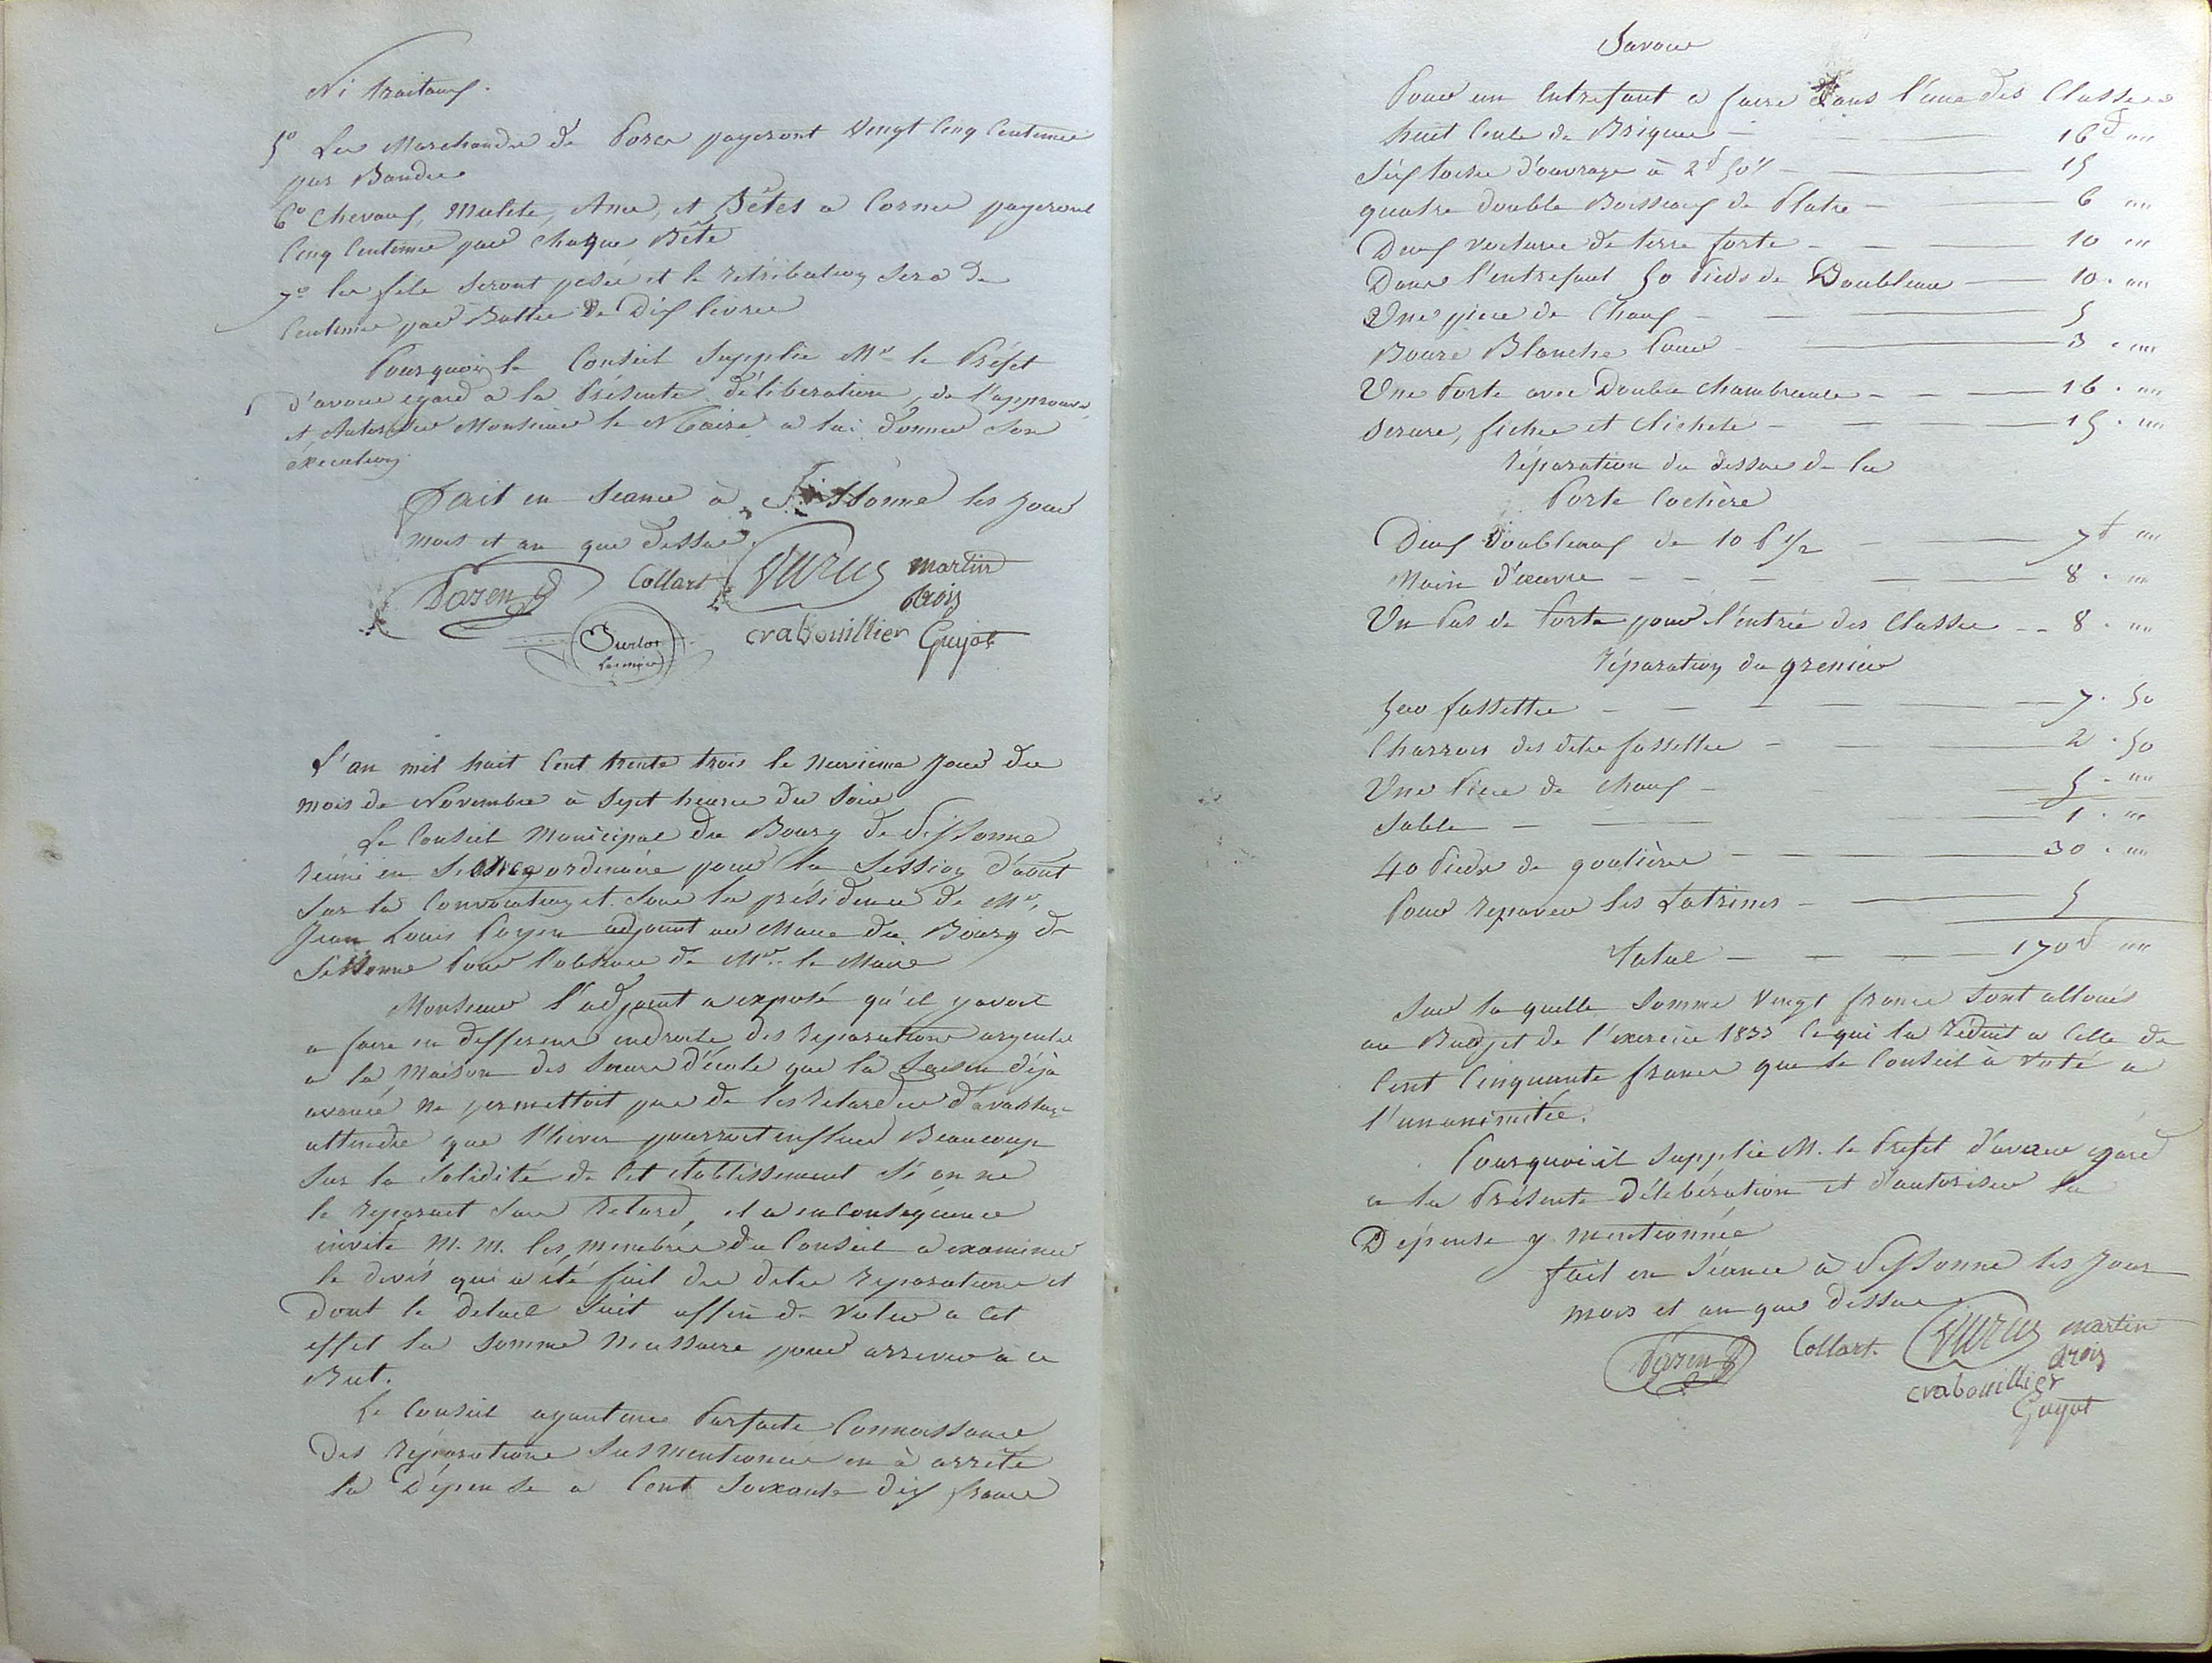 Ni traitans.
5° Les Marchands de Porcs payeront Vingt Cinq Centimes
par Bandes
6° Chevaux, Mulets, Anes, et Bêtes a Cornes payeront
Cinq Centimes par chaque Bête
7° les fils seront pesés et la rétribution sera de
Centimes par Bottes de Dix livres
Pourquoi le Conseil Supplie Mr le Préfet
d'avoir egard a la Présente délibération, de l'approuver
et Autoriser Monsieur le Maire a lui donner son
éxecution.
Fait en Seance à Sissonne les jour
mois et an que dessus.
Collart Varus martin
Trois
crabouillier Guyot
L'an mil huit Cent trente trois le neuvieme jour du
mois de Novembre à Sept heures du Soir
Le Conseil Municipal du Bourg de Sissonne
réuni en Séance ordinaire pour la Session d'aout
Sur la Convocation et sous la présidence de Mr.
Jean Louis Payen adjoint au Maire du Bourg de
Sissonne Pour l'absence de Mr. le Maire
Monsieur l'adjoint a exposé qu'il y avoit
a faire en differens endroits des réparations urgentes
a la Maison des Sœurs d'école que la Saison déjà
avancée ne permettoit pas de les retarder d'avantage
attendu que l'hiver pourroit influer Beaucoup
Sur la Solidité de Cet établissement Si on ne
le reparoit Sans Retard, il a en conséquence
invité M. M. les membres du Conseil a examiner
le devis qui a été fait des dites reparations et
dont le detail Suit affin de voter a cet
effet la Somme Necessaire pour arriver à ce
But.
Le Conseil ayant une Parfaite Connoissance
des réparations Susmentionnées en à arrêté
la Dépense a Cent Soixante dix francs
Savoir
Pour un Entrefant a faire dans l'une des Classes
huit Cents de Briques 16f ""
Six toises d'ouvrage à 2f 50c 15
quatre double Boisseaux de Platre 6 ""
Deux voitures de terre forte 10 ""
Dans l'entrefant 50 Pieds de Doubleaux 10 . ""
Une piece de Chaux 5
Boure Blanche Pour 3 . ""
Une Porte avec Double Chambranle 16 . ""
Serure, fiches et Clichete 15 . ""
réparation du dessus de la
Porte Cochère
Deux Doubleaux de 10 P 1/2 7f ""
Main d'œuvre 8 . ""
Un Pas de Porte pour l'entrée des Classes 8 . ""
réparation du grenier
500 fassettes 7 . 50
Charrois des dites fassettes 2 . 50
Une Piece de Chaux 5 . ""
Sable 1 . ""
40 Pieds de goutières 30 . ""
Pour reparer les Latrines 5
Total 170f ""
Sur la quelle Somme Vingt francs Sont alloués
au Budjet de l'exercice 1833 Ce qui la réduit a Celle de
Cent Cinquante francs que le Conseil à Voté a
l'unanimitée.
Pourquoi il Supplie M. le Préfet d'avoir egard
a la Présente Délibération et d'autoriser la
Dépense y mentionnée
fait en Séance à Sissonne les jour
mois et an que dessus
Collart. Varus martin
Trois
crabouillier
Guyot